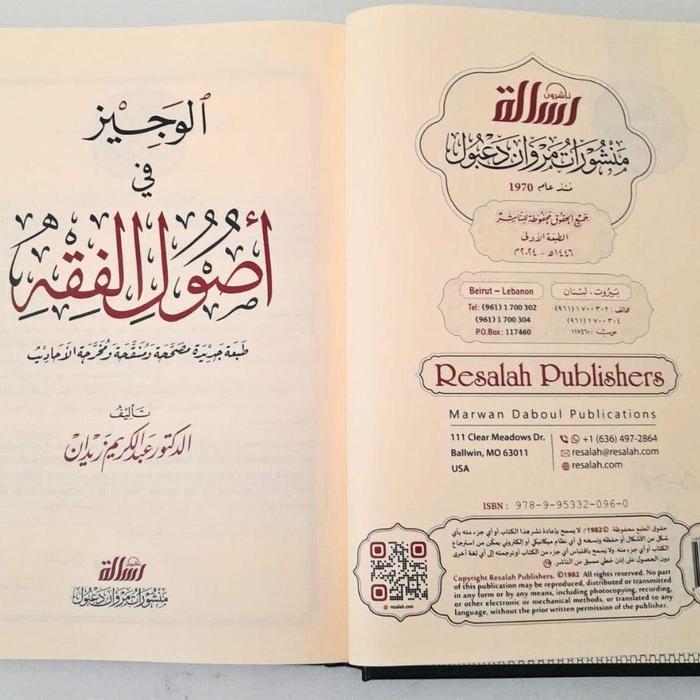 الوجيز
في
أصول الفقه
طبعة جديدة مصححة ومنقحة ومخرجة الأحاديث
تأليف
الدكتور عبد الكريم زيدان
رسالة
ناشرون
منشورات مروان دعبول
رسالة
ناشرون
منشورات مروان دعبول
منذ عام 1970
جميع الحقوق محفوظة للناشر
الطبعة الأولى
١٤٤٦هـ - ٢٠٢٤م
Beirut – Lebanon
Tel: (961) 1 700 302
(961) 1 700 304
P.O.Box: 117460
بيروت - لبنان
هاتف: ٧٠٠٣٠٢ ١ (٩٦١)
٧٠٠٣٠٤ ١ (٩٦١)
ص.ب: ١١٧٤٦٠
Resalah Publishers
Marwan Daboul Publications
111 Clear Meadows Dr.
Ballwin, MO 63011
USA
+1 (636) 497-2864
resalah@resalah.com
resalah.com
ISBN: 978-9-95332-096-0
حقوق الطبع محفوظة. ©1982م لا يسمح بإعادة نشر هذا الكتاب أو أي جزء منه بأي
شكل من الأشكال أو حفظه ونسخه في أي نظام ميكانيكي أو إلكتروني يمكّن من استرجاع
الكتاب أو أي جزء منه. ولا يسمح باقتباس أي جزء من الكتاب أو ترجمته إلى أي لغة أخرى
دون الحصول على إذن خطي مسبق من الناشر.
Copyright Resalah Publishers. ©1982 All rights reserved. No part
of this publication may be reproduced, distributed or transmitted
in any form or by any means, including photocopying, recording,
or other electronic or mechanical methods, or translated to any
language, without the prior written permission of the publisher.
resalah.com